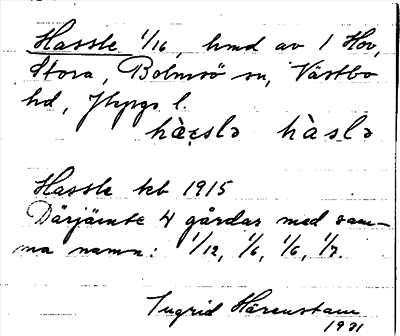 Hassle 1/16, hmd av 1 Hov,
Stora, Bolmsö sn, Västbo
hd, Jkpgs l.
hàslə hàslə
Hassle kb 1915
Därjämte 4 gårdar med sam-
ma namn: 1/12, 1/6, 1/6, 1/7.
Ingrid Härenstam
1931